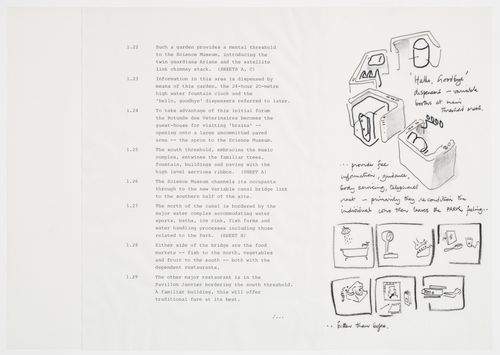 1.22 Such a garden provides a mental threshold
to the Science Museum, introducing the
twin guardians Ariane and the satellite
link chimney stack. (SHEETS A, C)
1.23 Information in this area is dispensed by
means of this garden, the 24-hour 20-metre
high water fountain clock and the
'hello, goodbye' dispensers referred to later.
1.24 To take advantage of this initial forum
the Rotunde des Veterinaires becomes the
guest-house for visiting 'brains' --
opening onto a large uncommitted paved
area -- the apron to the Science Museum.
1.25 The south threshold, embracing the music
complex, entwines the familiar trees,
fountain, buildings and paving with the
high level services ribbon. (SHEET A)
1.26 The Science Museum channels its occupants
through to the new variable canal bridge link
to the southern half of the site.
1.27 The north of the canal is bordered by the
major water complex accommodating water
sports, baths, ice rink, fish farms and
water handling processes including those
related to the Park. (SHEET B)
1.28 Either side of the bridge are the food
markets -- fish to the north, vegetables
and fruit to the south -- both with the
dependent restaurants.
1.29 The other major restaurant is in the
Pavillon Janvier bordering the south threshold.
A familiar building, this will offer
traditional fare at its best.
/...
'Hello, Goodbye'
dispensers - variable
booths at main
threshold areas.
... provide free
information, guidance,
body servicing, telephones
rest - primarily they re-condition the
individual who then leaves the PARK feeling..
.. better than before.